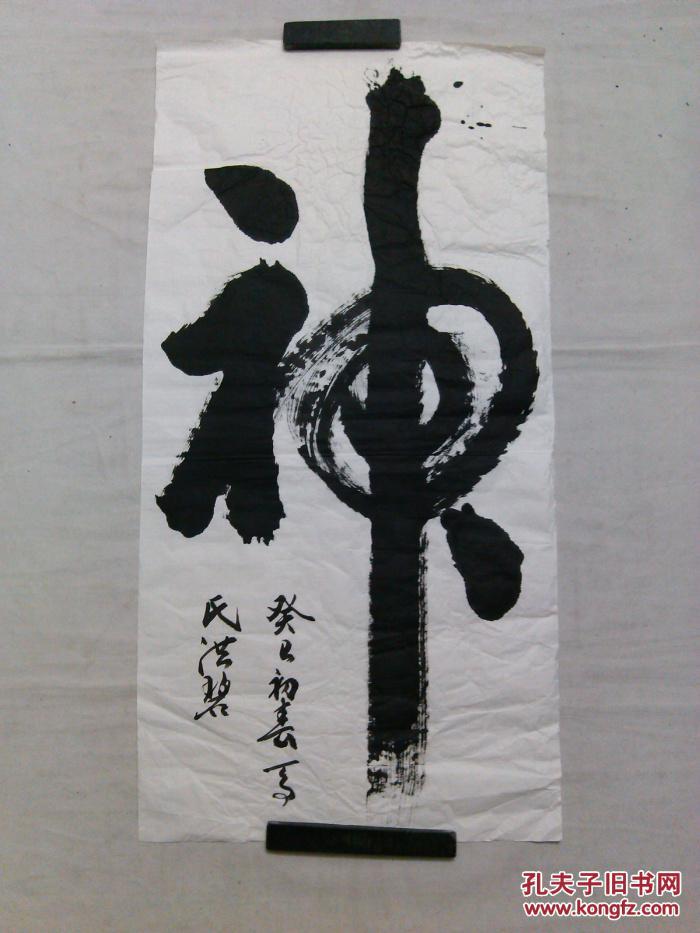 神
癸巳初春
氏洪碧
孔夫子旧书网
www.kongfz.com